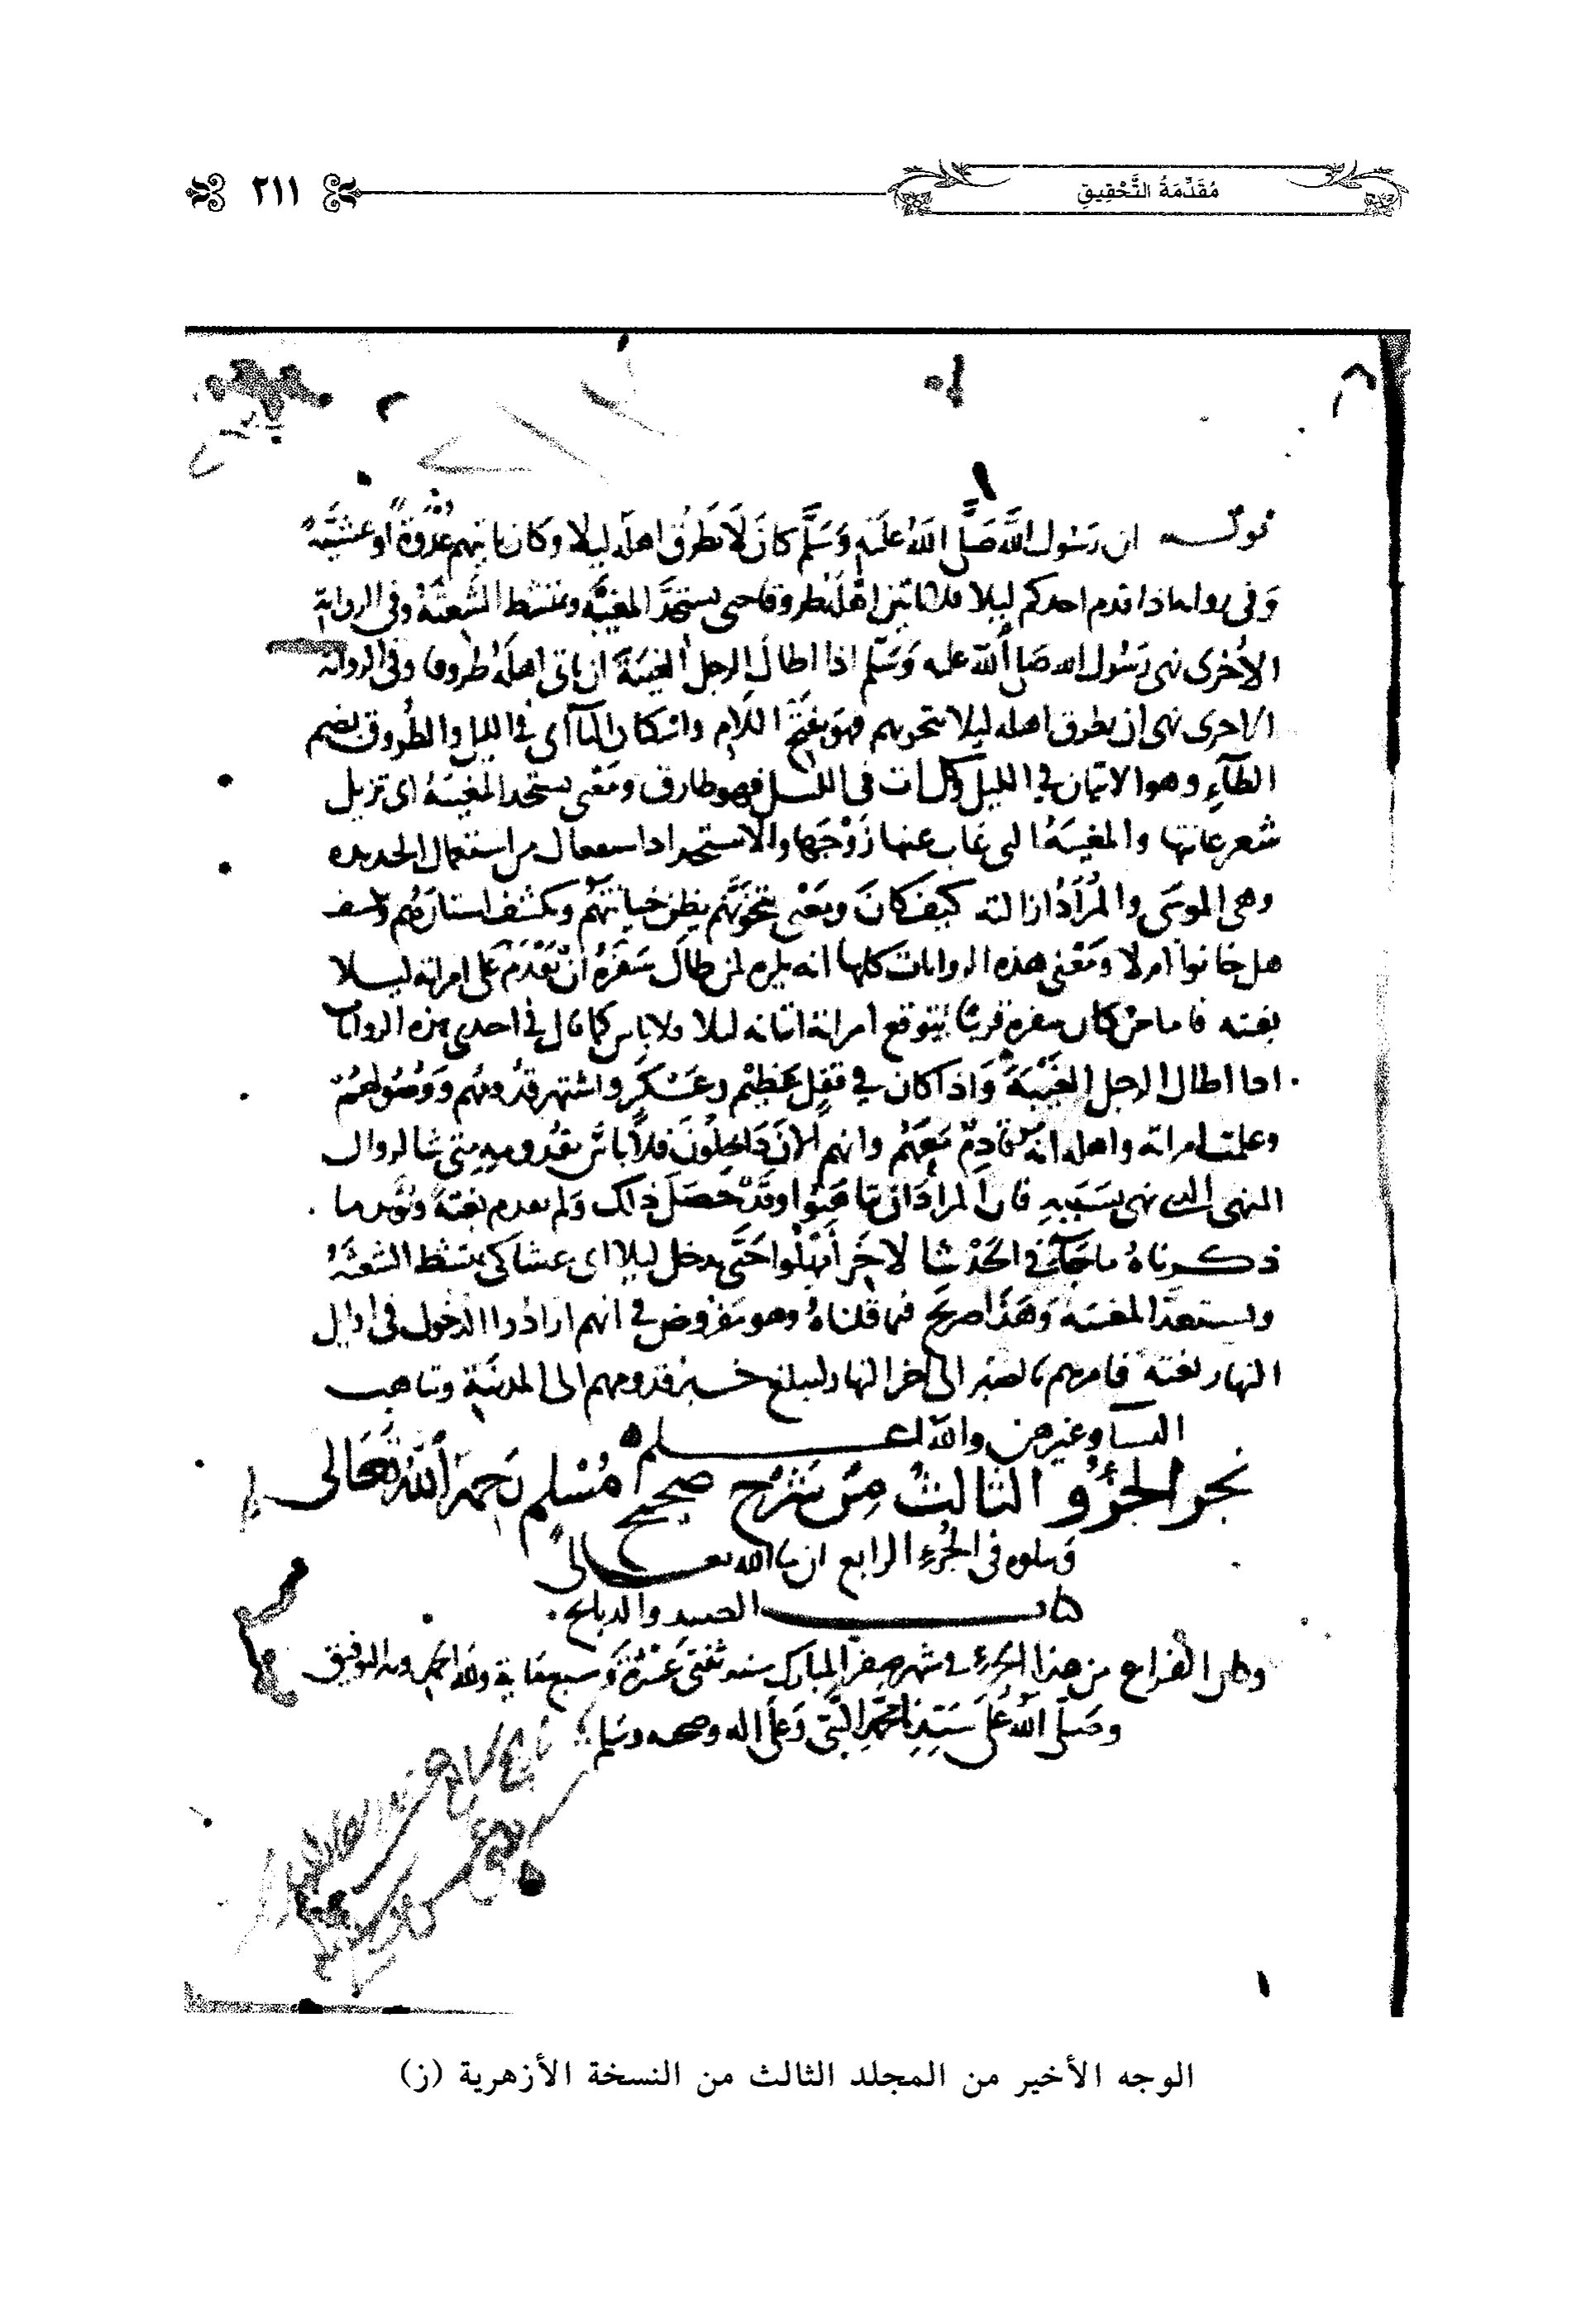 مُقَدِّمَةُ التَّحْقِيقِ
٢١١
قوله ان رَسُول اللَّه صَلَّى اللَّهُ عَلَيْهِ وَسَلَّم كانَ لَا يَطرُق اهله ليلا وكان ياتيهم غُدْوَةً او عَشِيَّةً
وَفى روايه اذا قدم احدكم ليلا فلا ياتين اهله طروقا حتى تستحدَّ المغيبَة وتمتشط الشَّعِثَةُ وفى الرواية
الاُخْرى نهى رَسُول الله صَلى اللَّه عليه وَسَلَّم اذا اطال الرجل الغيبَةَ ان ياتى اهله طروقا وفى الرواية
الاخرى نهى ان يطرق اهله ليلا يتخونهم فهو بفَتْح اللّام واسكان اليآ اى فى الليل والطُروق بضم
الطآءِ وهو الاتيان فى الليل وكل آت فى الليل فهو طارق ومَعْنى تستحد المغيبَةُ اى تزيل
شعر عانتها والمغيبَةُ التى غاب عنها زَوْجَها والاستحداد استفعال من استعمال الحديده
وهى الموسَى والمُرَادُ ازالته كيف كانَ ومَعْنى يتخوَّنهُم يظن خيانتهُم ويكشف استارَهُم ويكشف
هل خانوا ام لا ومَعْنى هذه الروايات كلها انه يكره لمن طالَ سَفَرُهُ انْ يَقْدَمَ عَلى امراته ليلا
بغته فاما من كان سفره قريبًا تتوقع امراته اتيانه ليلا فلا باس كما قال فى احدى هذه الروايات
اذا اطال الرجل الغَيْبَةَ وَاذا كان فى قفلٍ عَظِيْم وعَسْكَرٍ واشتهر قدُومُهم ووصُولهمُ
وعلمت امراته واهله انهُ قادِمٌ مَعَهُم وانهم الآن دَاخِلُونَ فلا باسَ بقدُومهِ متى شا لزوال
المنهى الذى نهى بسَبَبِهِ فان المُرادَ ان يتاهبُوا وقَدْ حَصَلَ ذلك وَلم يقدم بغتةً ويُؤيد ما
ذكرناهُ ما جَآءَ فى الحَدِيْث الآخَر أَمْهِلُوا حَتَّى ندخل ليلا اى عشا كى تمتشط الشعثَةُ
وتستحدّ المغيبة وَهَذا صريح فيما قلناهُ وهو مَفْروض فى انهم ارادوا الدخول فى اوايل
النهار بغتة فامرهم بالصبر الى آخر النهار ليبلغ خبر قدومهم الى المدينَة وتتاهب
النسآ وغيرهن واللَّه اعلم
نجز الجُزْؤُ الثالثُ مِنْ شَرْح صحيح مُسْلِم رَحِمَهُ اللَّهُ تَعَالى
ويتلوه فى الجُزء الرابع ان شا الله تعالى
كتاب الصيد والذبايح
وكان الفراغ من هذا الجُزء فى شهر صفر المبارك سنه ثنتى عَشْرَةَ وَسبع ماية ولله الحمد وبه التوفيق
وصَلّى اللَّهُ عَلَى سَيّدِنَا مُحَمَّدٍ النَّبِيّ وَعَلَى اله وصحبه وسَلم
الوجه الأخير من المجلد الثالث من النسخة الأزهرية (ز)